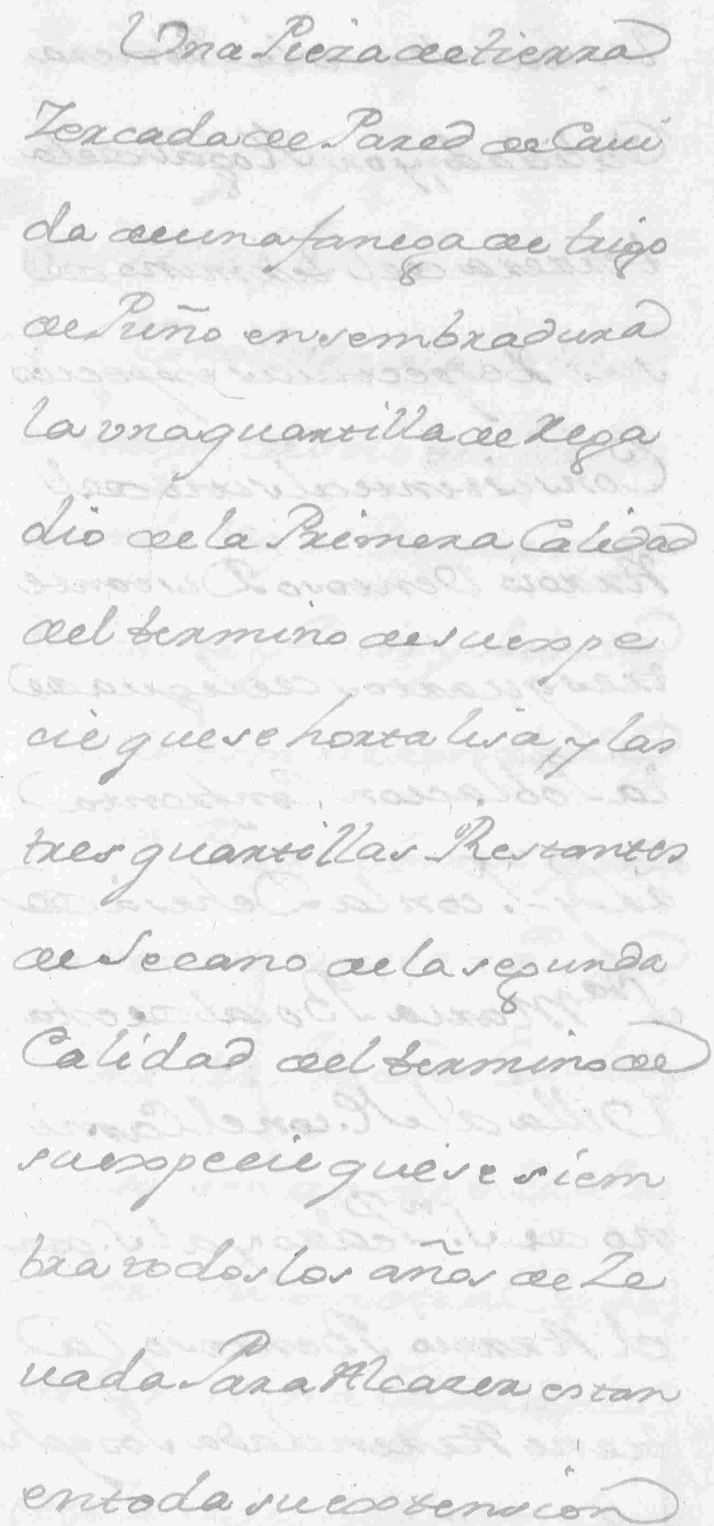 Una Pieza de tierra
Zercada de Pared de Caui
da de una fanega de trigo
de Puño en sembradura
la vna quartilla de Rega
dio de la Primera Calidad
del termino de su espe
cie que se hortalisa, y las
tres quartillas Restantes
de Secano de la segunda
Calidad del termino de
su especie que se siem
bra todos los años de Ze
uada Para Alcazer estan
en toda su extension